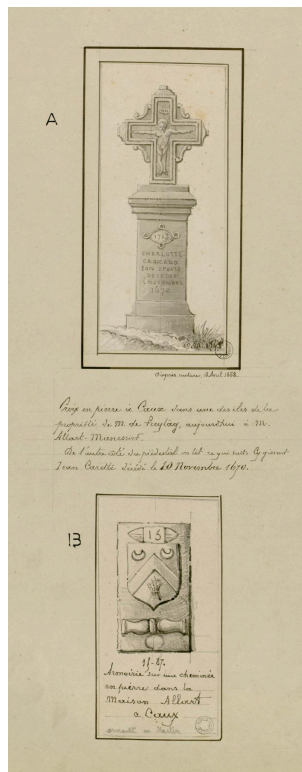 A
CHARLOTTE
CARCAUD
SON EPOUSE
DECEDEE
NOVEMBRE
1670
D'après nature, Avril 1888.
Croix en pierre à Caux dans une des îles de la
propriété de M. de aujourd'hui à M.
Allart-Manessier.
De l'autre côté du piédestal on lit ce qui suit: Cy gisent
Jean Carette décédé le 20 Novembre 1670.
B
15
15-87.
Armoirie sur une cheminée
en pierre dans la
Maison Allart
à Caux